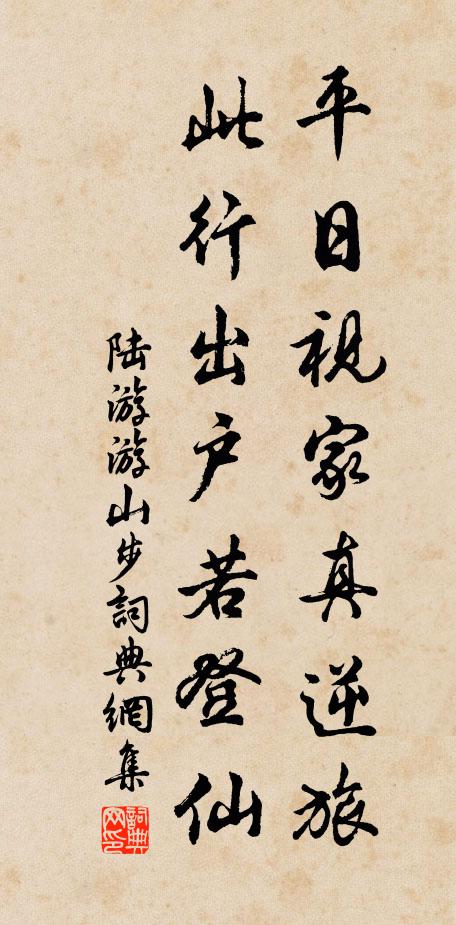 平日視家真逆旅
此行出户若登仙
陆游游山步詞典網集
詞典网印